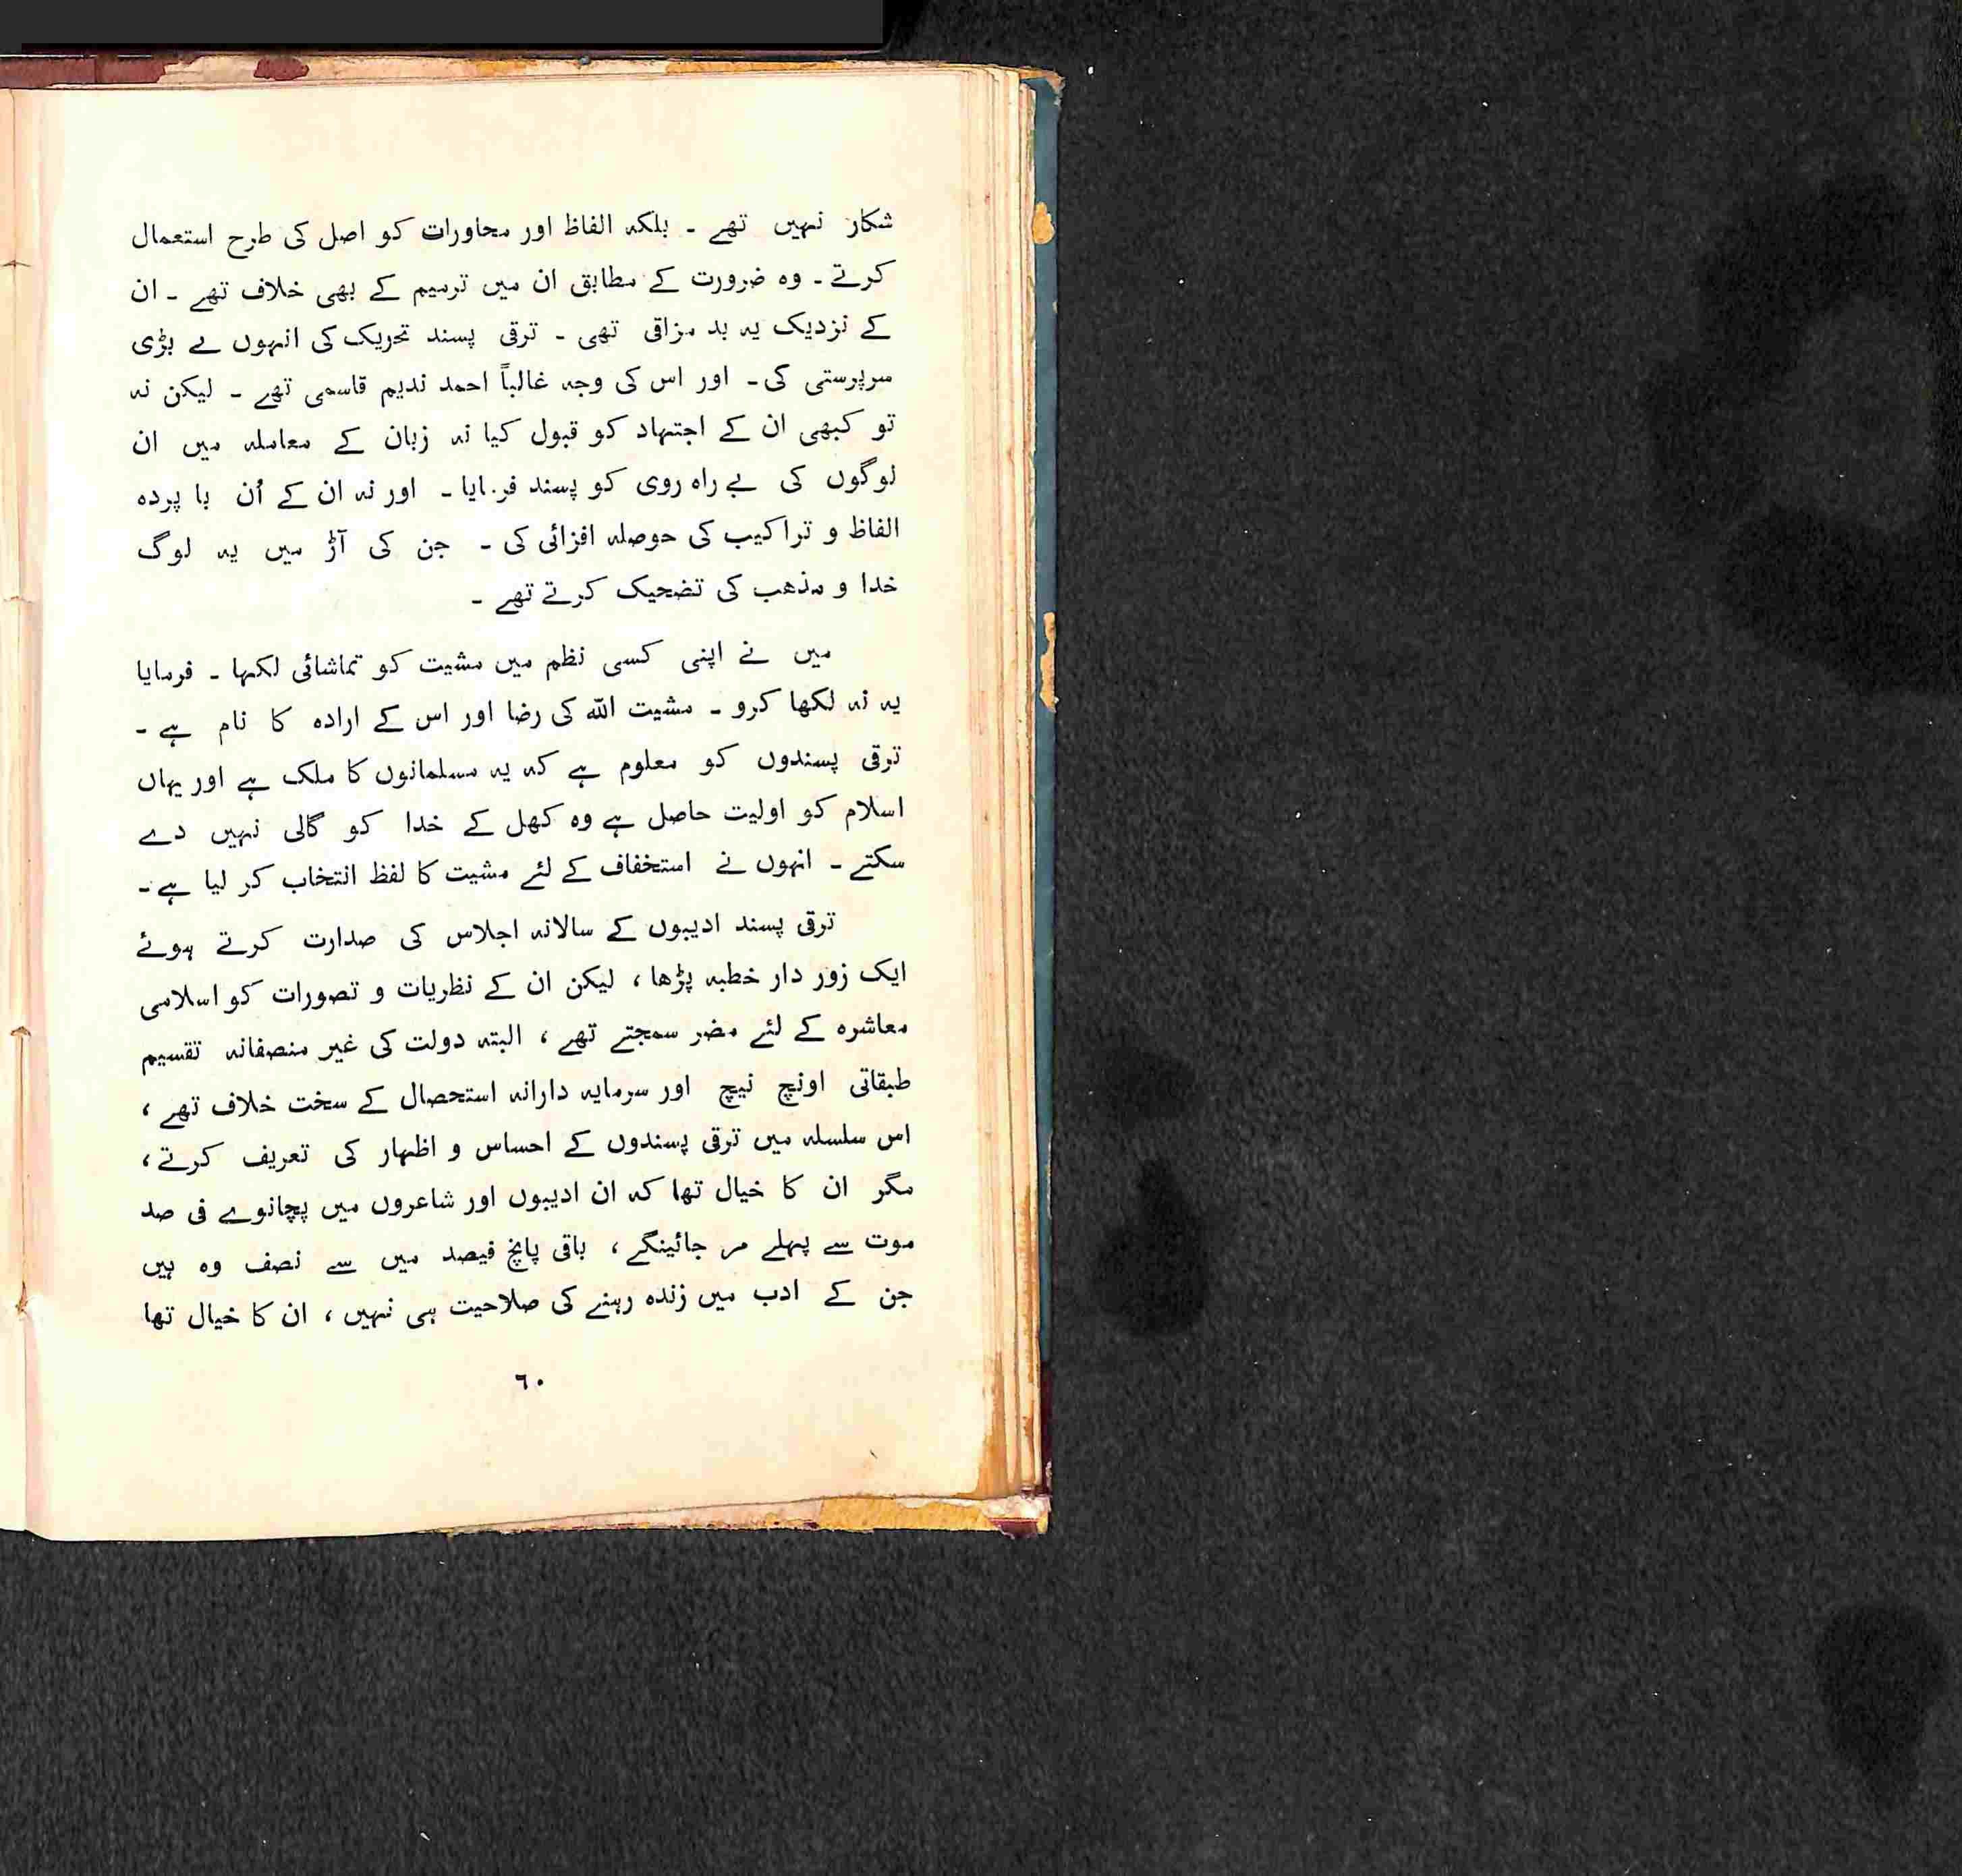 شکار نہیں تھے ۔ بلکہ الفاظ اور محاورات کو اصل کی طرح استعمال
کرتے ۔ وہ ضرورت کے مطابق ان میں ترمیم کے بھی خلاف تھے ۔ ان
کے نزدیک یہ بد مزاقی تھی ۔ ترقی پسند تحریک کی انہوں نے بڑی
سرپرستی کی ۔ اور اس کی وجہ غالباً احمد ندیم قاسمی تھے ۔ لیکن نہ
تو کبھی ان کے اجتہاد کو قبول کیا نہ زبان کے معاملہ میں ان
لوگوں کی بے راہ روی کو پسند فرمایا ۔ اور نہ ان کے اُن با پردہ
الفاظ و تراکیب کی حوصلہ افزائی کی ۔ جن کی آڑ میں یہ لوگ
خدا و مذھب کی تضحیک کرتے تھے ۔
میں نے اپنی کسی نظم میں مشیت کو تماشائی لکھا ۔ فرمایا
یہ نہ لکھا کرو ۔ مشیت اللہ کی رضا اور اس کے ارادہ کا نام ہے ۔
ترقی پسندوں کو معلوم ہے کہ یہ مسلمانوں کا ملک ہے اور یہاں
اسلام کو اولیت حاصل ہے وہ کھل کے خدا کو گالی نہیں دے
سکتے ۔ انہوں نے استخفاف کے لئے مشیت کا لفظ انتخاب کر لیا ہے ۔
ترقی پسند ادیبوں کے سالانہ اجلاس کی صدارت کرتے ہوئے
ایک زور دار خطبہ پڑھا ، لیکن ان کے نظریات و تصورات کو اسلامی
معاشرہ کے لئے مضر سمجتے تھے ، البتہ دولت کی غیر منصفانہ تقسیم
طبقاتی اونچ نیچ اور سرمایہ دارانہ استحصال کے سخت خلاف تھے ،
اس سلسلہ میں ترقی پسندوں کے احساس و اظہار کی تعریف کرتے ،
مگر ان کا خیال تھا کہ ان ادیبوں اور شاعروں میں پچانوے فی صد
موت سے پہلے مر جائینگے ، باقی پانچ فیصد میں سے نصف وہ ہیں
جن کے ادب میں زندہ رہنے کی صلاحیت ہی نہیں ، ان کا خیال تھا
٦٠